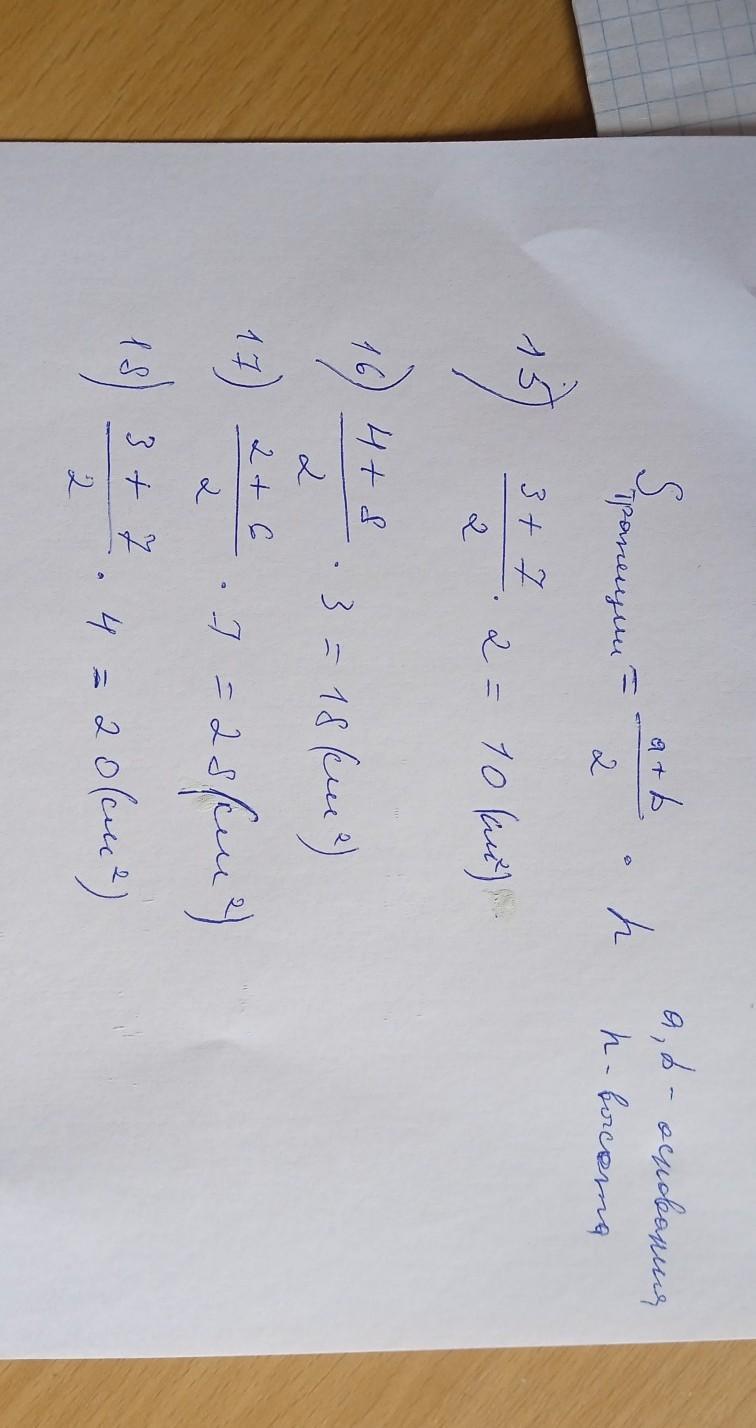 S трапеции = a + b / 2 · h a, b - основания
h - высота
15) 3 + 7 / 2 · 2 = 10 (см²)
16) 4 + 8 / 2 · 3 = 18 (см²)
17) 2 + 6 / 2 · 7 = 28 (см²)
18) 3 + 7 / 2 · 4 = 20 (см²)